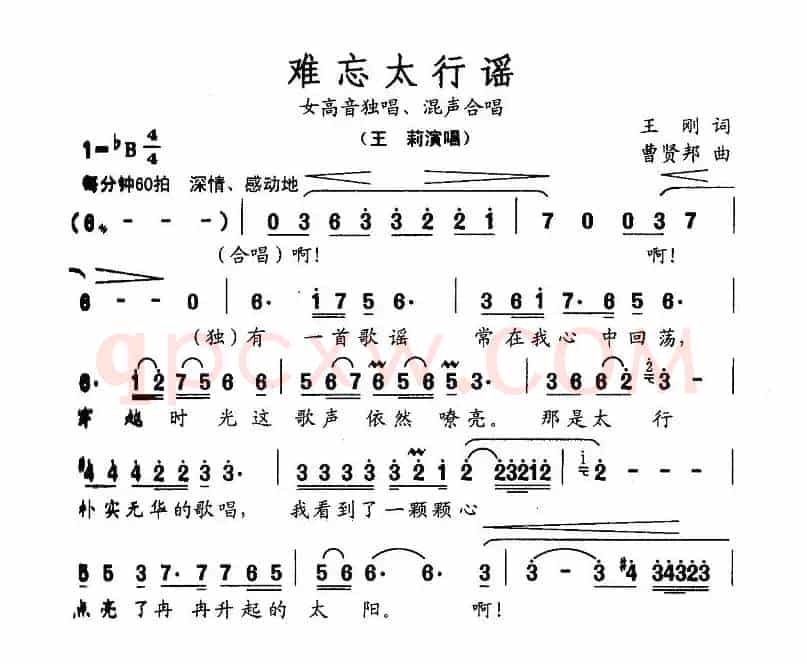 难忘太行谣
女高音独唱、混声合唱
（王 莉演唱）
王 刚 词
曹贤邦 曲
1=♭B 4/4
每分钟60拍 深情、感动地
(6 - - -) | 0 3 6 3 3 2 2 1 | 7 0 0 3 7 |
（合唱）啊！ 啊！
6 - - 0 | 6· 1 7 5 6· | 3 6 1 7· 6 5 6· |
（独）有 一首歌谣 常在我心 中回荡，
6· 1 2 7 5 6 6 | 5 6 7 6 5 6 5 3· | 3 6 6 2 2 3 - - |
穿 越 时 光 这 歌 声 依 然 嘹 亮。 那 是 太 行
#4 4 4 2 2 3 3· | 3 3 3 3 3 2 1 2 23212 | 1 2 2 - |
朴实无华的歌唱， 我看到了一颗颗心
5 5 3 7· 7 7 6 5 | 5 6 6· 6· 3 | 3 - 3 #4 34323 |
点亮了冉 冉升起的 太 阳。 啊！
qpcxw.com